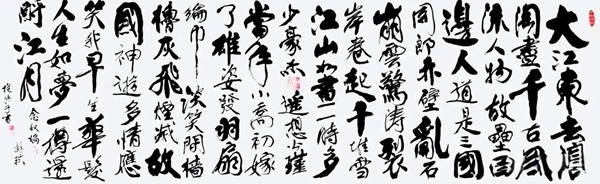 大江東去浪
淘盡千古風
流人物故壘西
邊人道是三國
周郎赤壁亂石
崩雲驚濤裂
岸卷起千堆雪
江山如畫一時多
少豪杰遥想公瑾
當年小喬初嫁
了雄姿發羽扇
綸巾談笑間檣
櫓灰飛煙滅故
國神遊多情應
笑我早生華髮
人生如夢一樽還
酹江月
念奴嬌
蘇軾